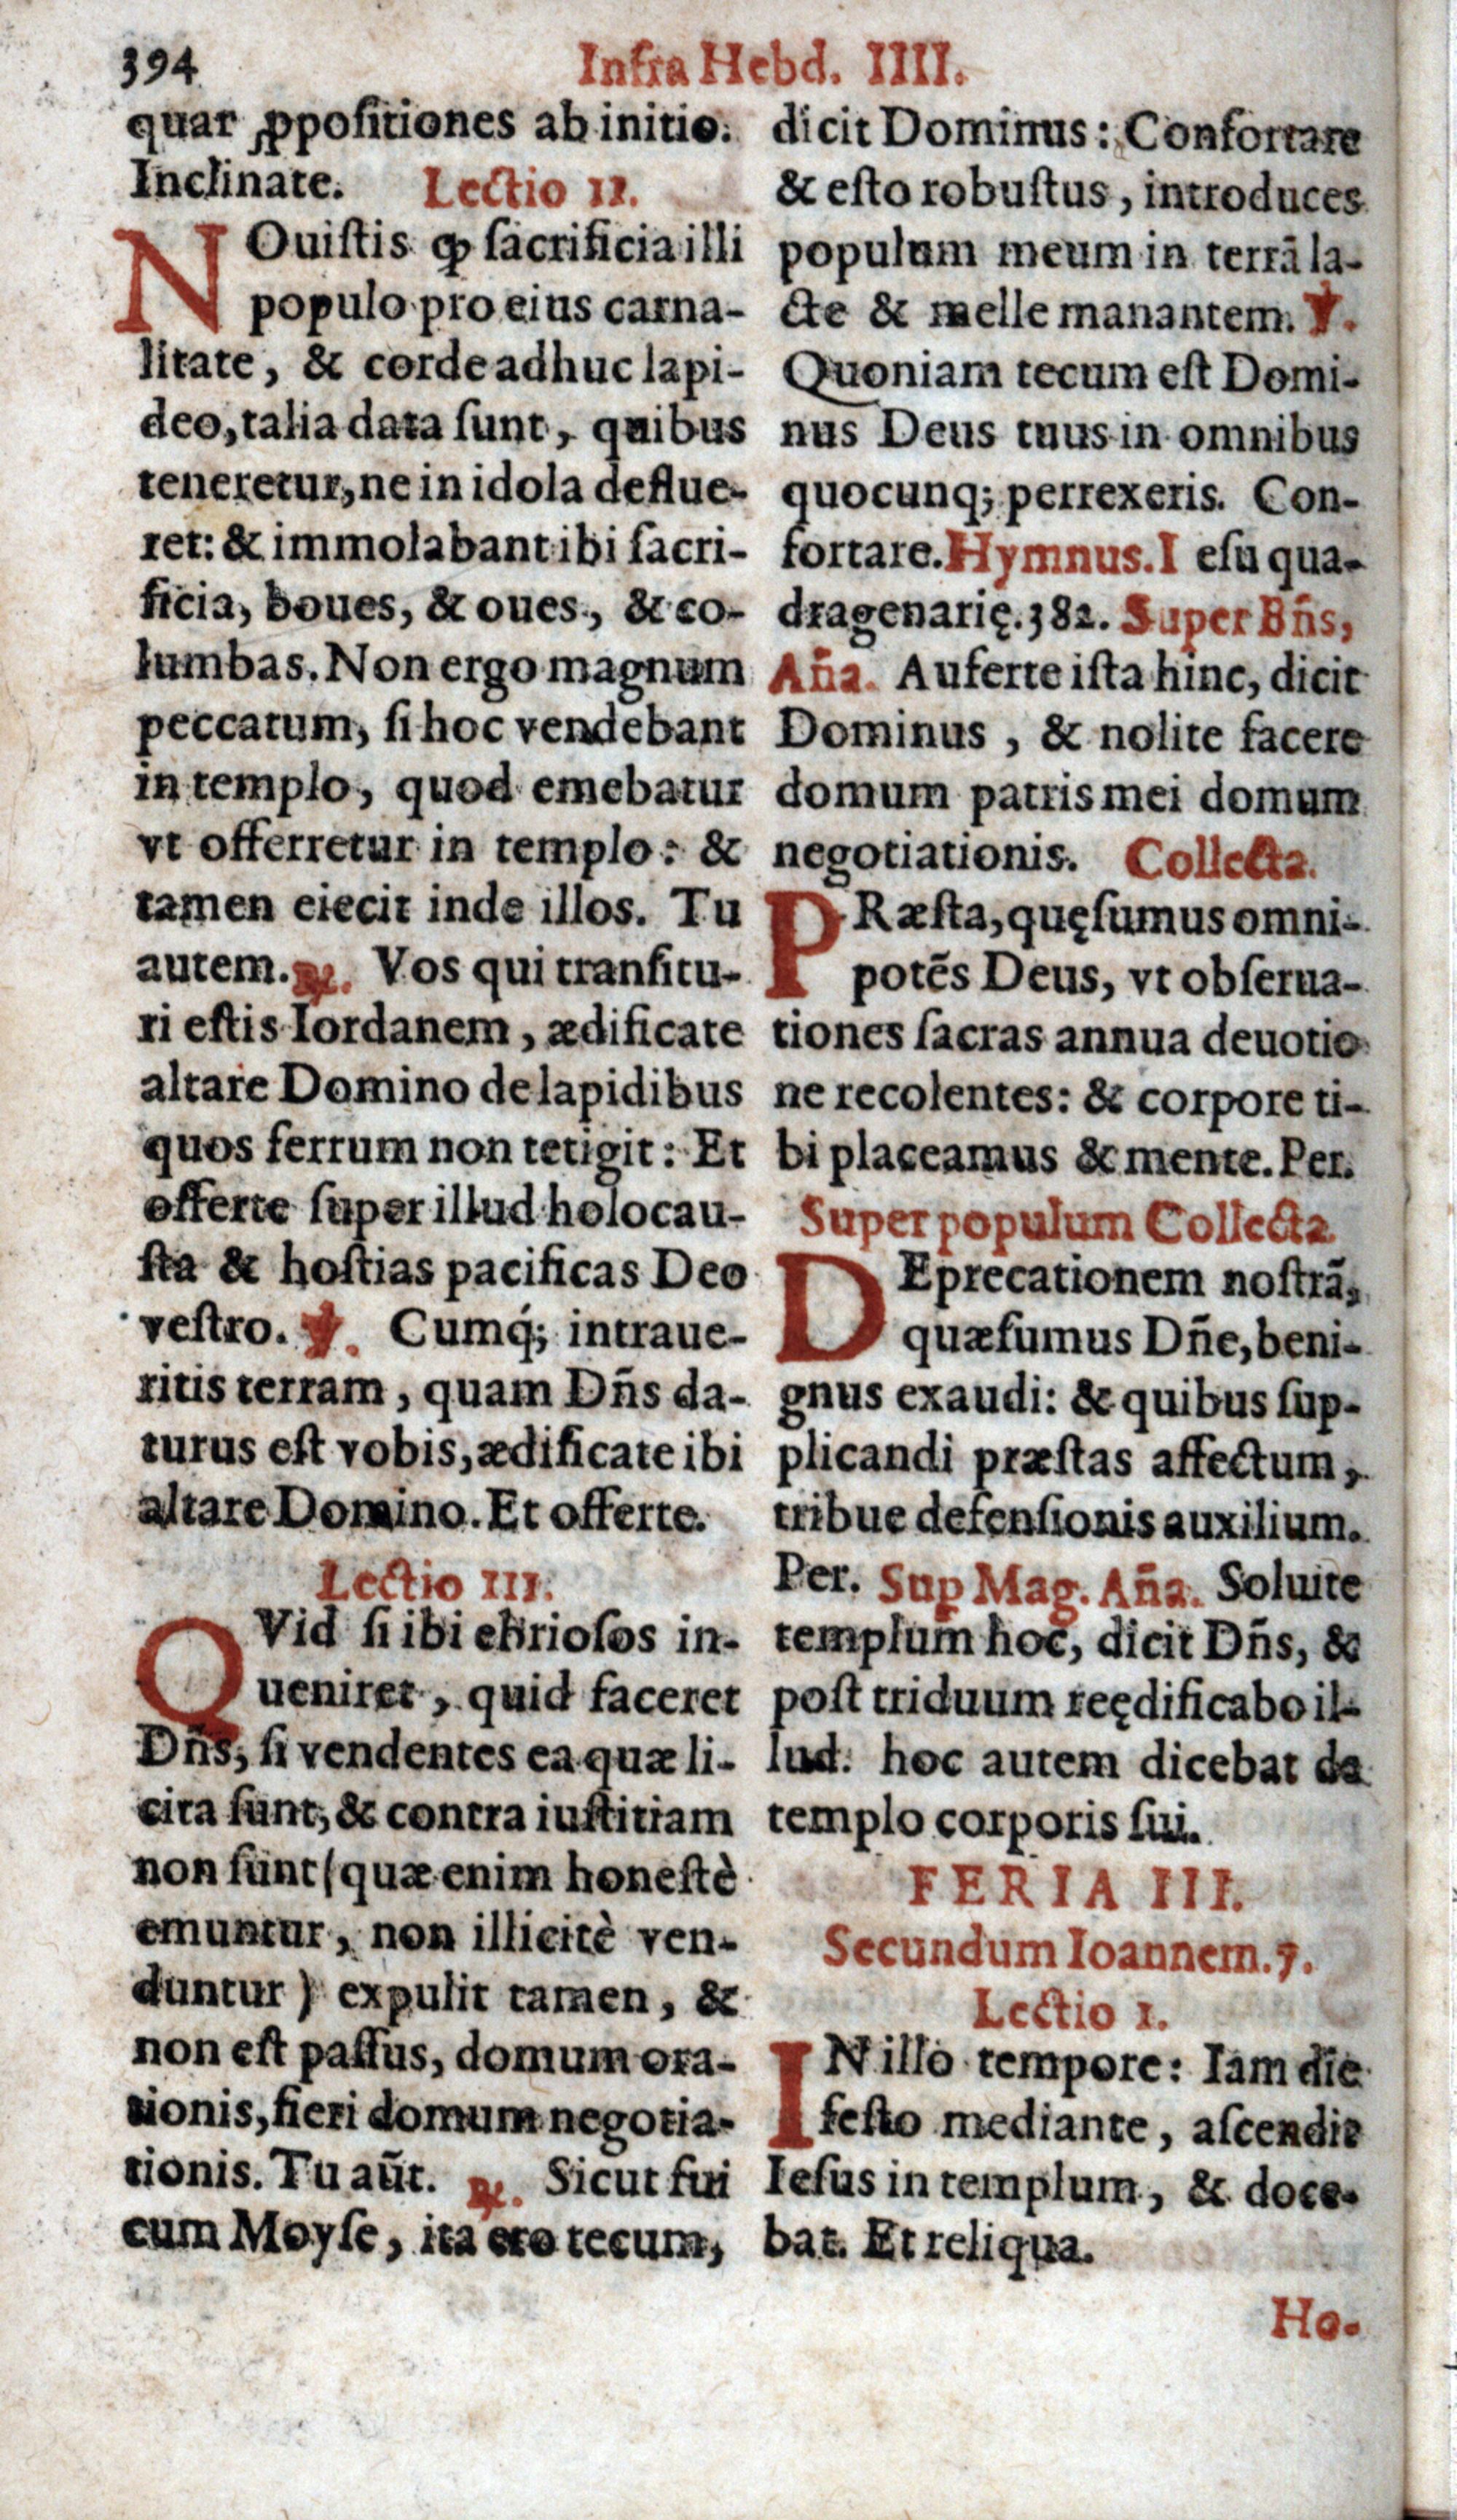 394
Infra Hebd. IIII.
quar ꝓpositiones ab initio.
Inclinate. Lectio II.
NOuiſtis ꝙ ſacrificia illi
populo pro eius carna-
litate, & corde adhuc lapi-
deo, talia data ſunt, quibus
teneretur, ne in idola deflue-
ret: & immolabant ibi ſacri-
ficia, boues, & oues, & co-
lumbas. Non ergo magnum
peccatum, ſi hoc vendebant
in templo, quod emebatur
vt offerretur in templo: &
tamen eiecit inde illos. Tu
autem. ℞. Vos qui tranſitu-
ri eſtis Iordanem, ædificate
altare Domino de lapidibus
quos ferrum non tetigit: Et
offerte ſuper illud holocau-
ſta & hoſtias pacificas Deo
veſtro. ℣. Cumq́; intraue-
ritis terram, quam Dñs da-
turus eſt vobis, ædificate ibi
altare Domino. Et offerte.
Lectio III.
QVid ſi ibi ebrioſos in-
ueniret, quid faceret
Dñs, ſi vendentes ea quæ li-
cita ſunt, & contra iuſtitiam
non ſunt (quæ enim honeſtè
emuntur, non illicitè ven-
duntur) expulit tamen, &
non eſt paſſus, domum ora-
tionis, fieri domum negotia-
tionis. Tu aũt. ℞. Sicut fui
cum Moyſe, ita ero tecum,
dicit Dominus: Confortare
& eſto robuſtus, introduces
populum meum in terrã la-
cte & melle manantem. ℣.
Quoniam tecum eſt Domi-
nus Deus tuus in omnibus
quocunq; perrexeris. Con-
fortare. Hymnus. I eſu qua-
dragenarię. 382. Super Bñs,
Aña. Auferte iſta hinc, dicit
Dominus, & nolite facere
domum patris mei domum
negotiationis. Collecta.
PRæſta, quęſumus omni-
potẽs Deus, vt obſerua-
tiones ſacras annua deuotio
ne recolentes: & corpore ti-
bi placeamus & mente. Per.
Super populum Collecta
DEprecationem noſtrã,
quæſumus Dñe, beni-
gnus exaudi: & quibus ſup-
plicandi præſtas affectum,
tribue defenſionis auxilium.
Per. Suꝑ Mag. Aña. Soluite
templum hoc, dicit Dñs, &
poſt triduum reędificabo il-
lud: hoc autem dicebat de
templo corporis ſui.
FERIA III.
Secundum Ioannem. 7.
Lectio I.
IN illo tempore: Iam die
feſto mediante, aſcendit
Ieſus in templum, & doce-
bat. Et reliqua.
Ho-